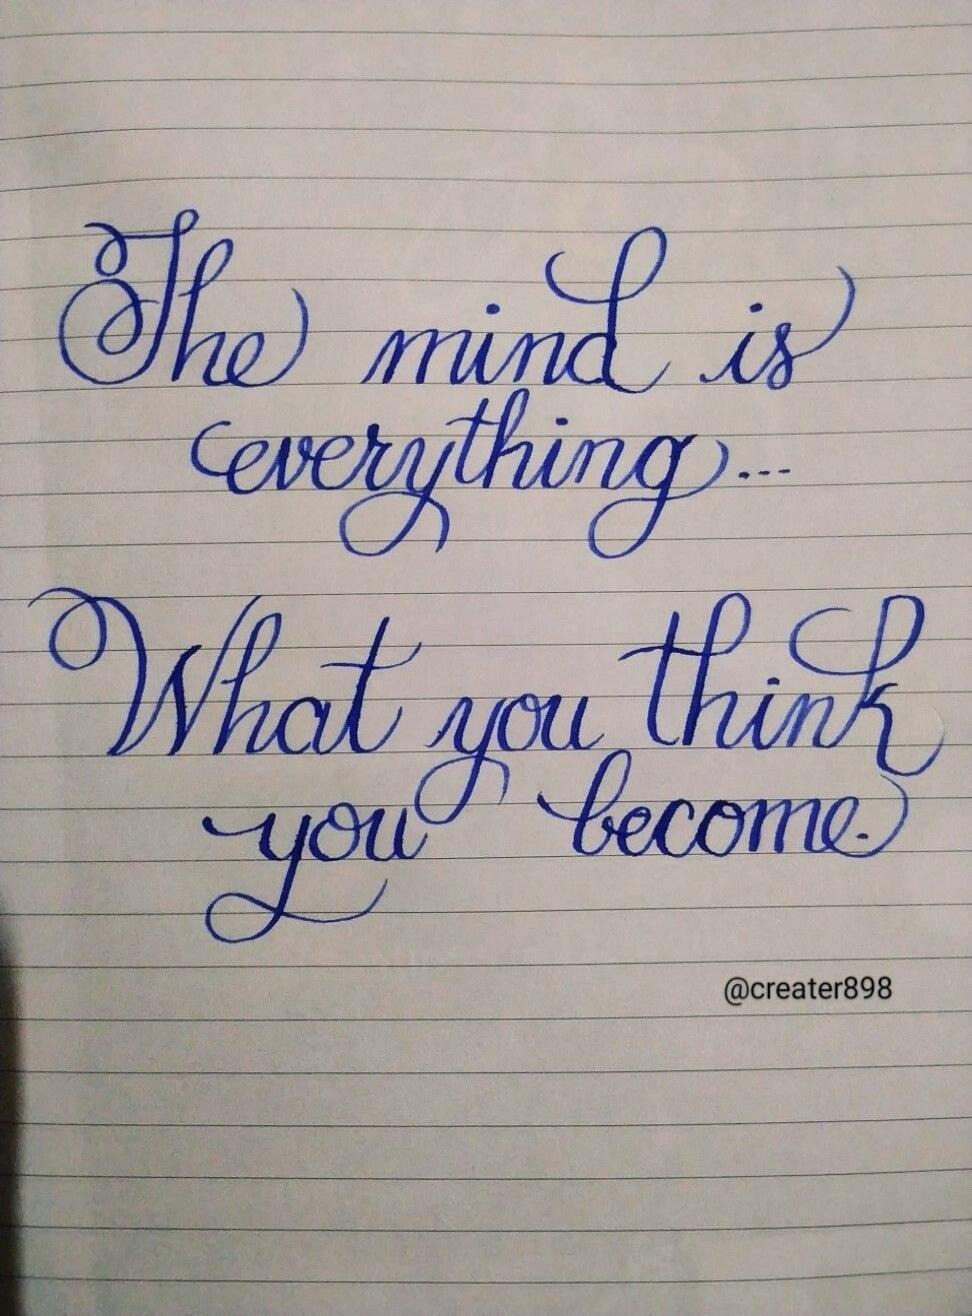 The mind is
everything...
What you think
you become.
@creater898